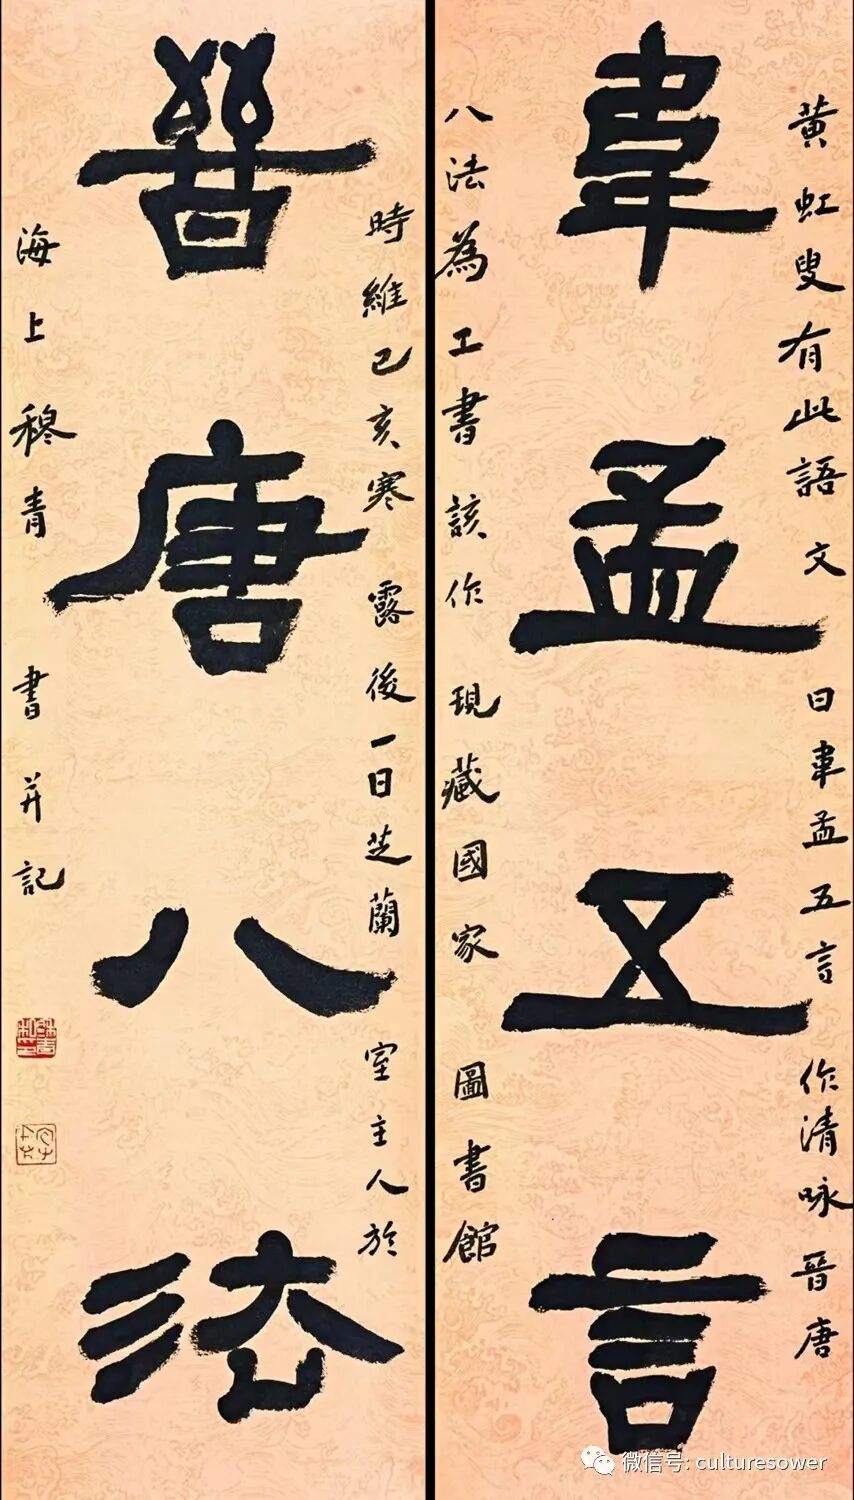 韋孟五言
晉唐八法
黃虹叟有此語文曰韋孟五言作清咏晉唐
八法為工書該作現藏國家圖書館
時維己亥寒露後一日芝蘭室主人於
海上穆青書并記
微信号: culturesower